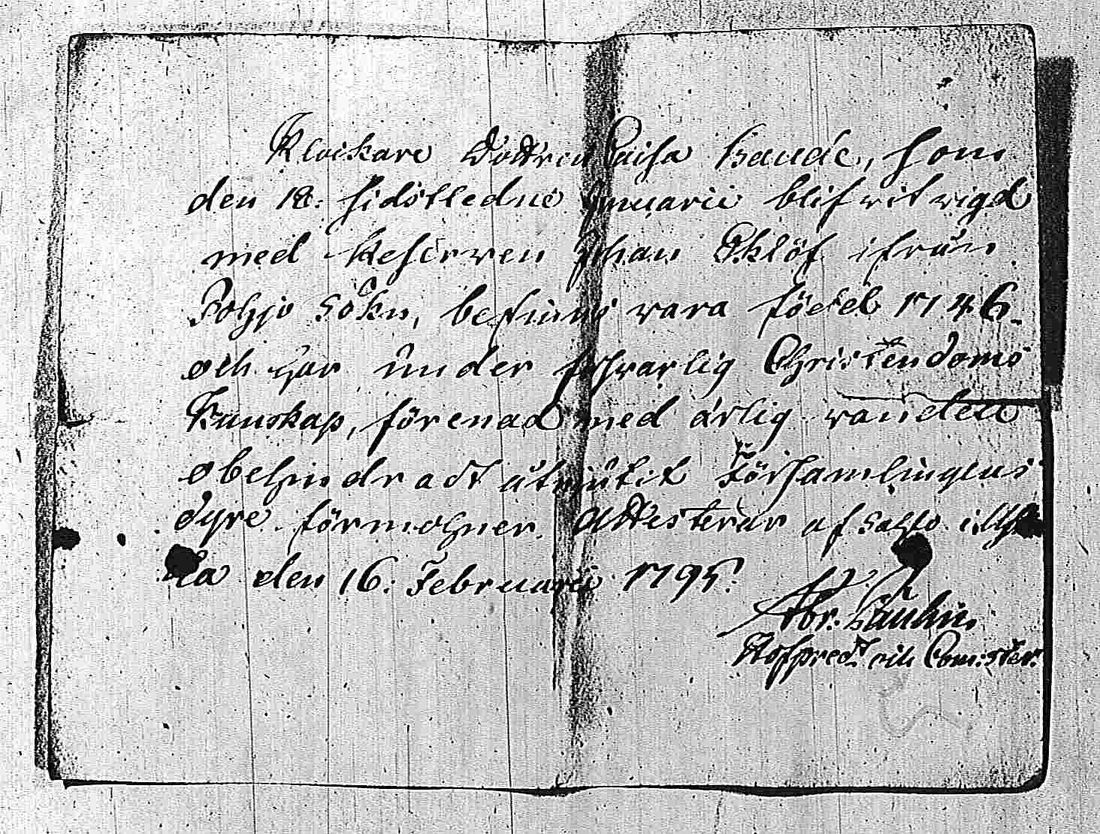 Klockare Dottren Caisa Haude, som
den 18. sidstledne Januarii blifvit vigd
med Johan Eklöf ifrån
Pohjo Sokn, befinnes vara född 1746.
och har under försvarlig Christendoms
Kunskap, förenad med ärlig vandel
obehindradt utnjutit Församlingens
dyre förmohner. Attesterar af
den 16. Februarii 1795.
Abr.
Hofpred. och Comister.